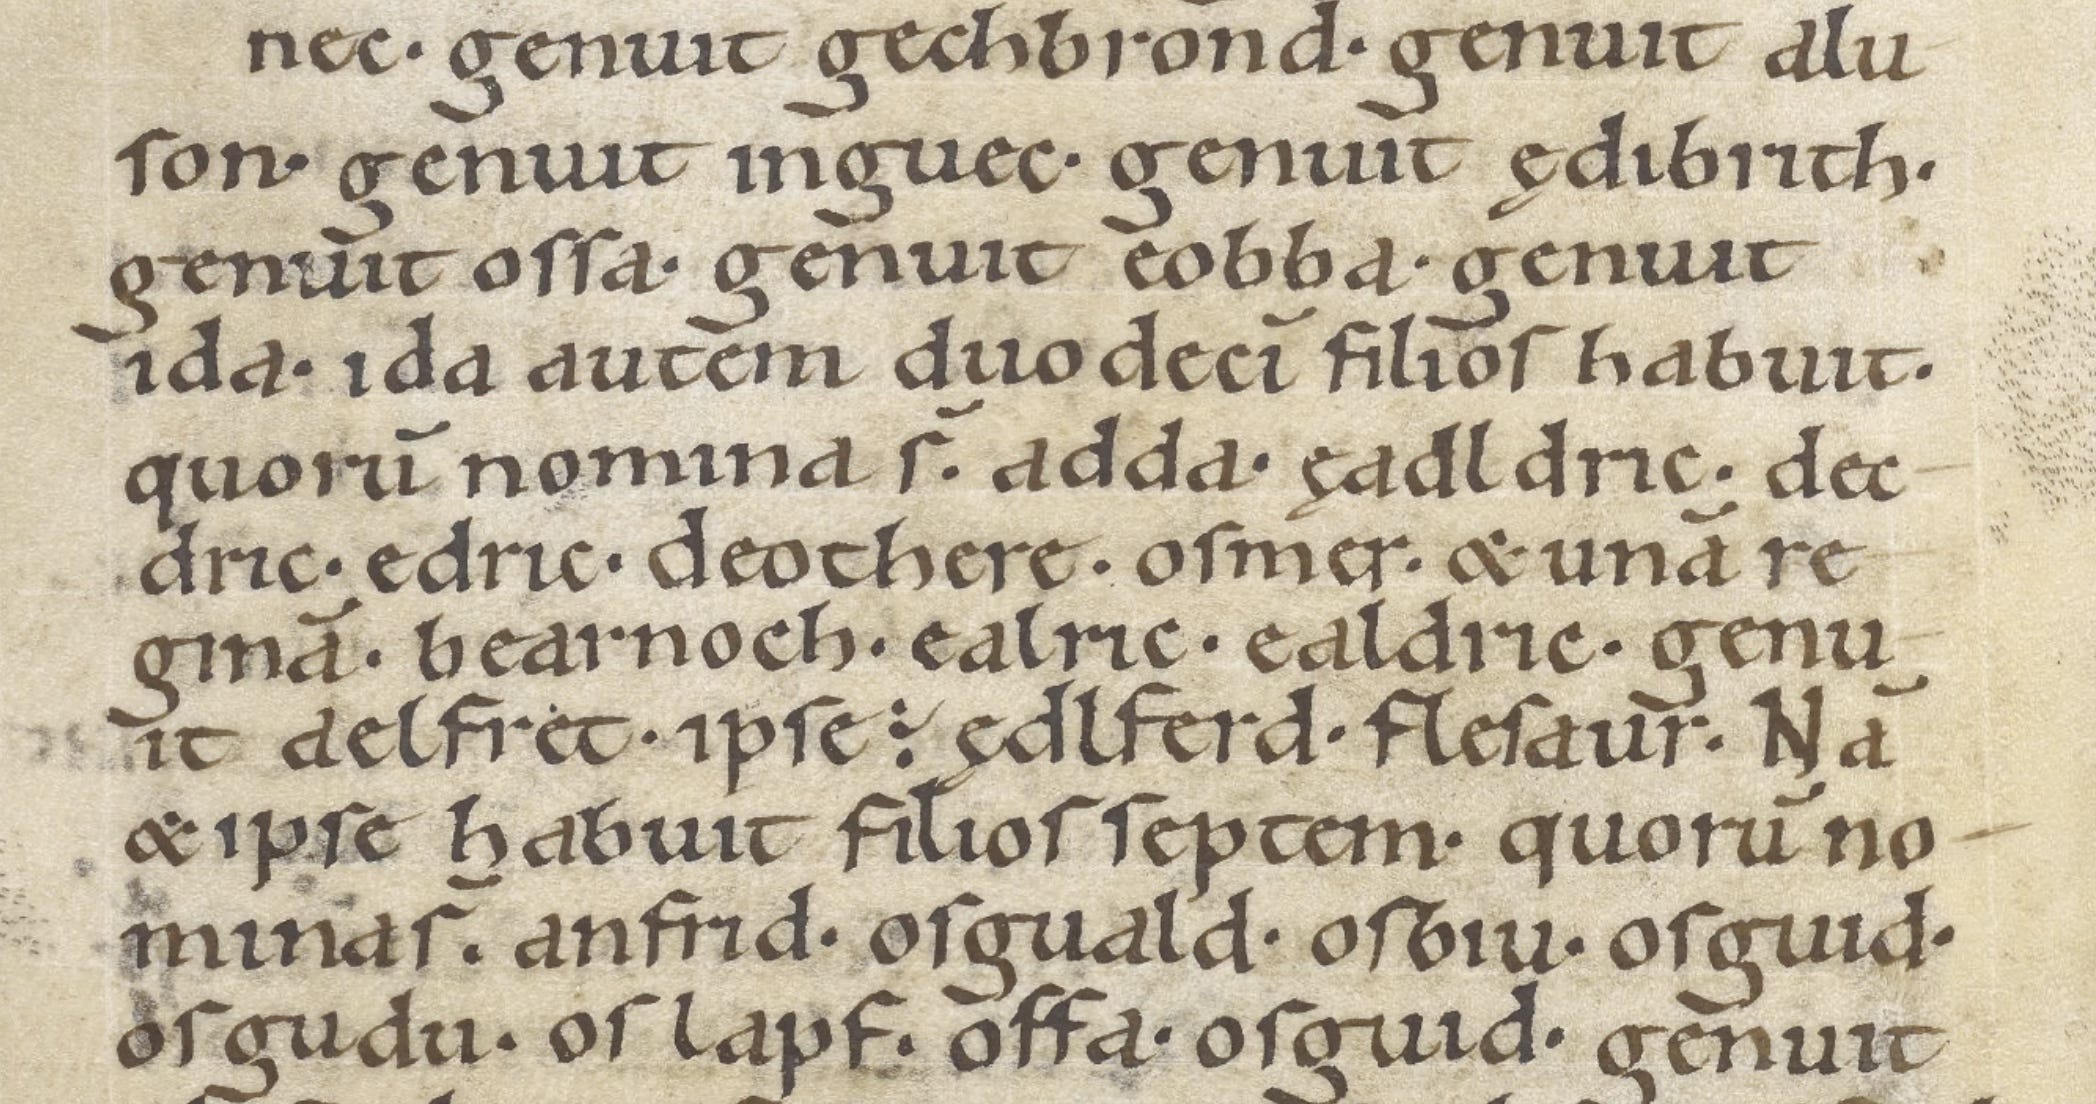 nec· genuit gechbrond· genuit alu
son· genuit inguec· genuit ędibrith·
genuit ossa· genuit eobba· genuit
ida· ida autem duodecī filios habuit·
quorū nomina s̄· adda· ęadldric· dec
dric· edric· deothere· osmer· & unā re
ginā· bearnoch· ealric· ealdric· genu
it aelfret· ipse ÷ ędlferd· flesaur· Nā
& ipse habuit filios septem· quorū no
mina s̄· anfrid· osguald· osbiu· osguid·
osgudu· os lapf· offa· osguid· genuit